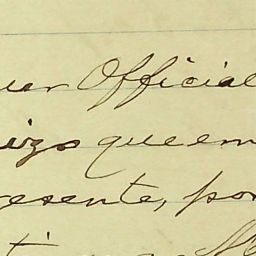 uer Official
izo que em
resente, por